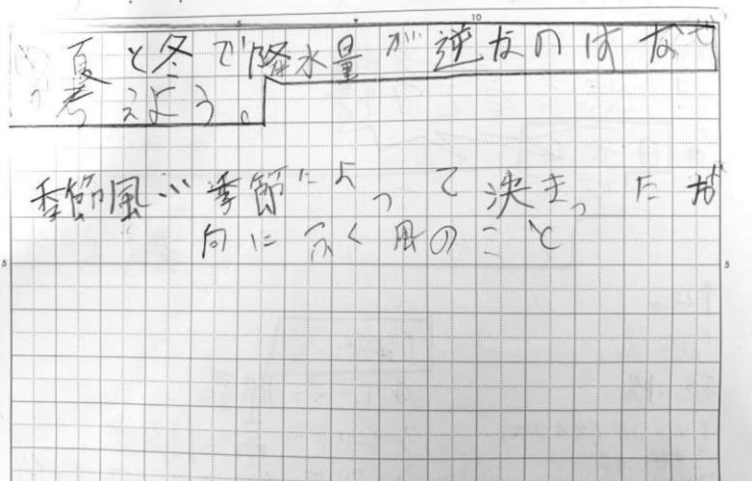 め 夏と冬で降水量が逆なのはなぜか
考えよう。
季節風…季節によって決まった方
向に吹く風のこと
10
5
5